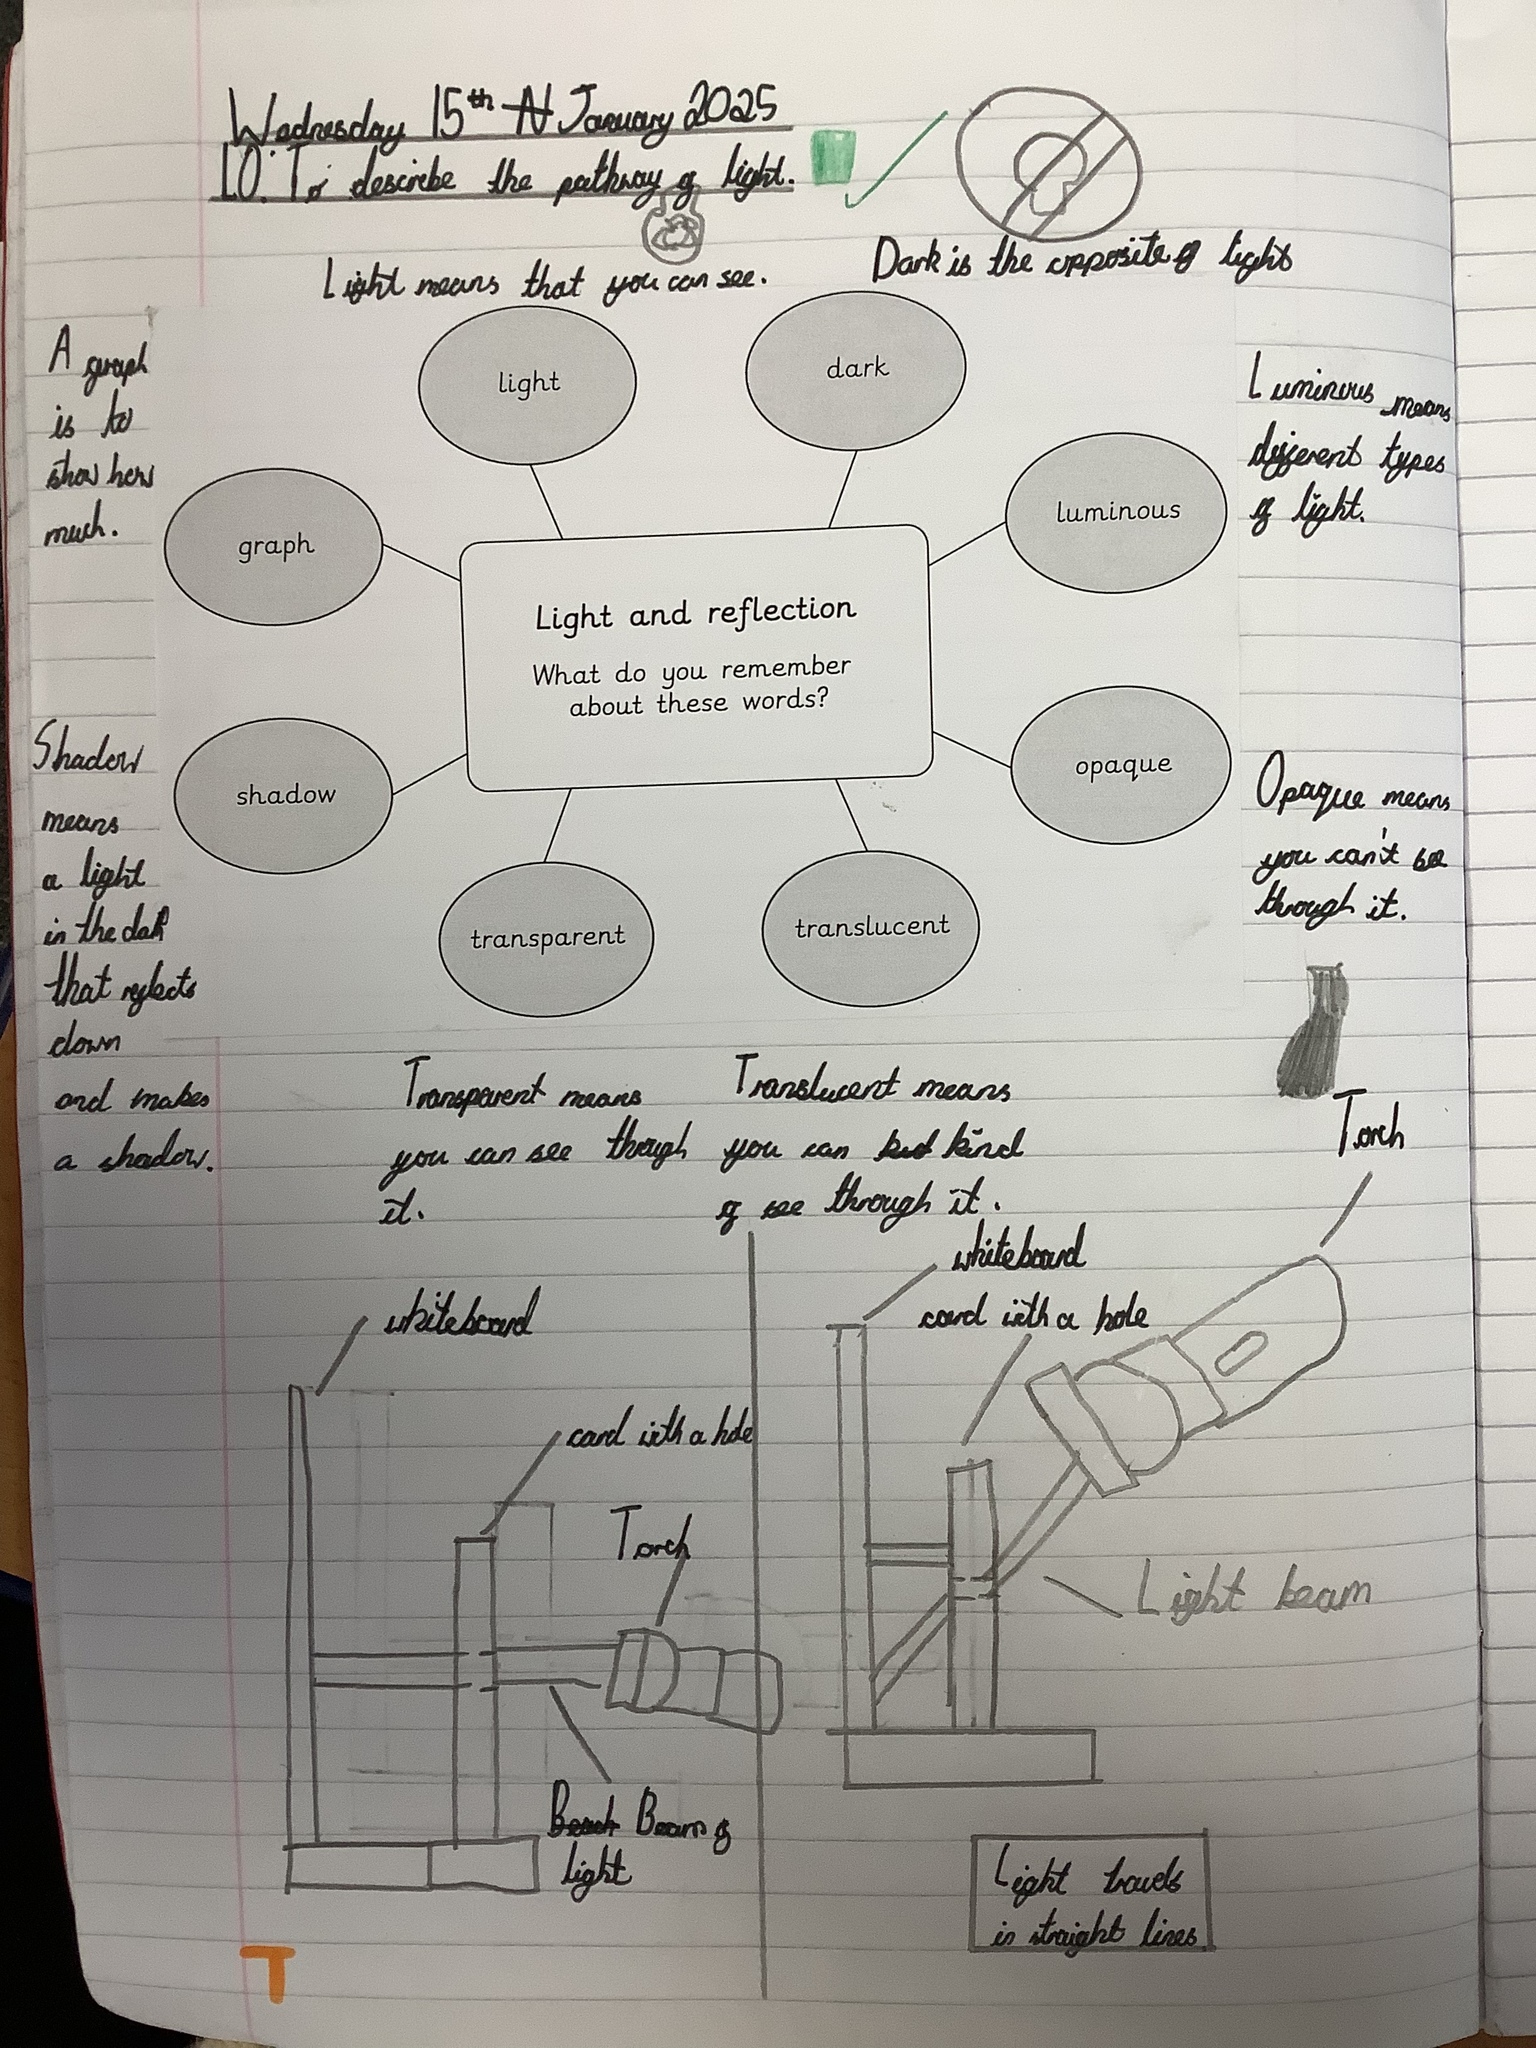 Wednesday 15th N January 2025
LO: To describe the pathway of light.
Light means that you can see.
Dark is the opposite of light
A graph
is to
show how
much.
light
dark
Luminous means
different types
of light.
graph
luminous
Light and reflection
What do you remember
about these words?
Shadow
means
a light
in the dark
that reflects
down
and makes
a shadow.
shadow
opaque
Opaque means
you can't see
through it.
transparent
translucent
Transparent means
you can see though
it.
Translucent means
you can but kind
of see through it.
Torch
whiteboard
card with a hole
whiteboard
card with a hole
Torch
Light beam
Beam of
light
Light travels
in straight lines
T